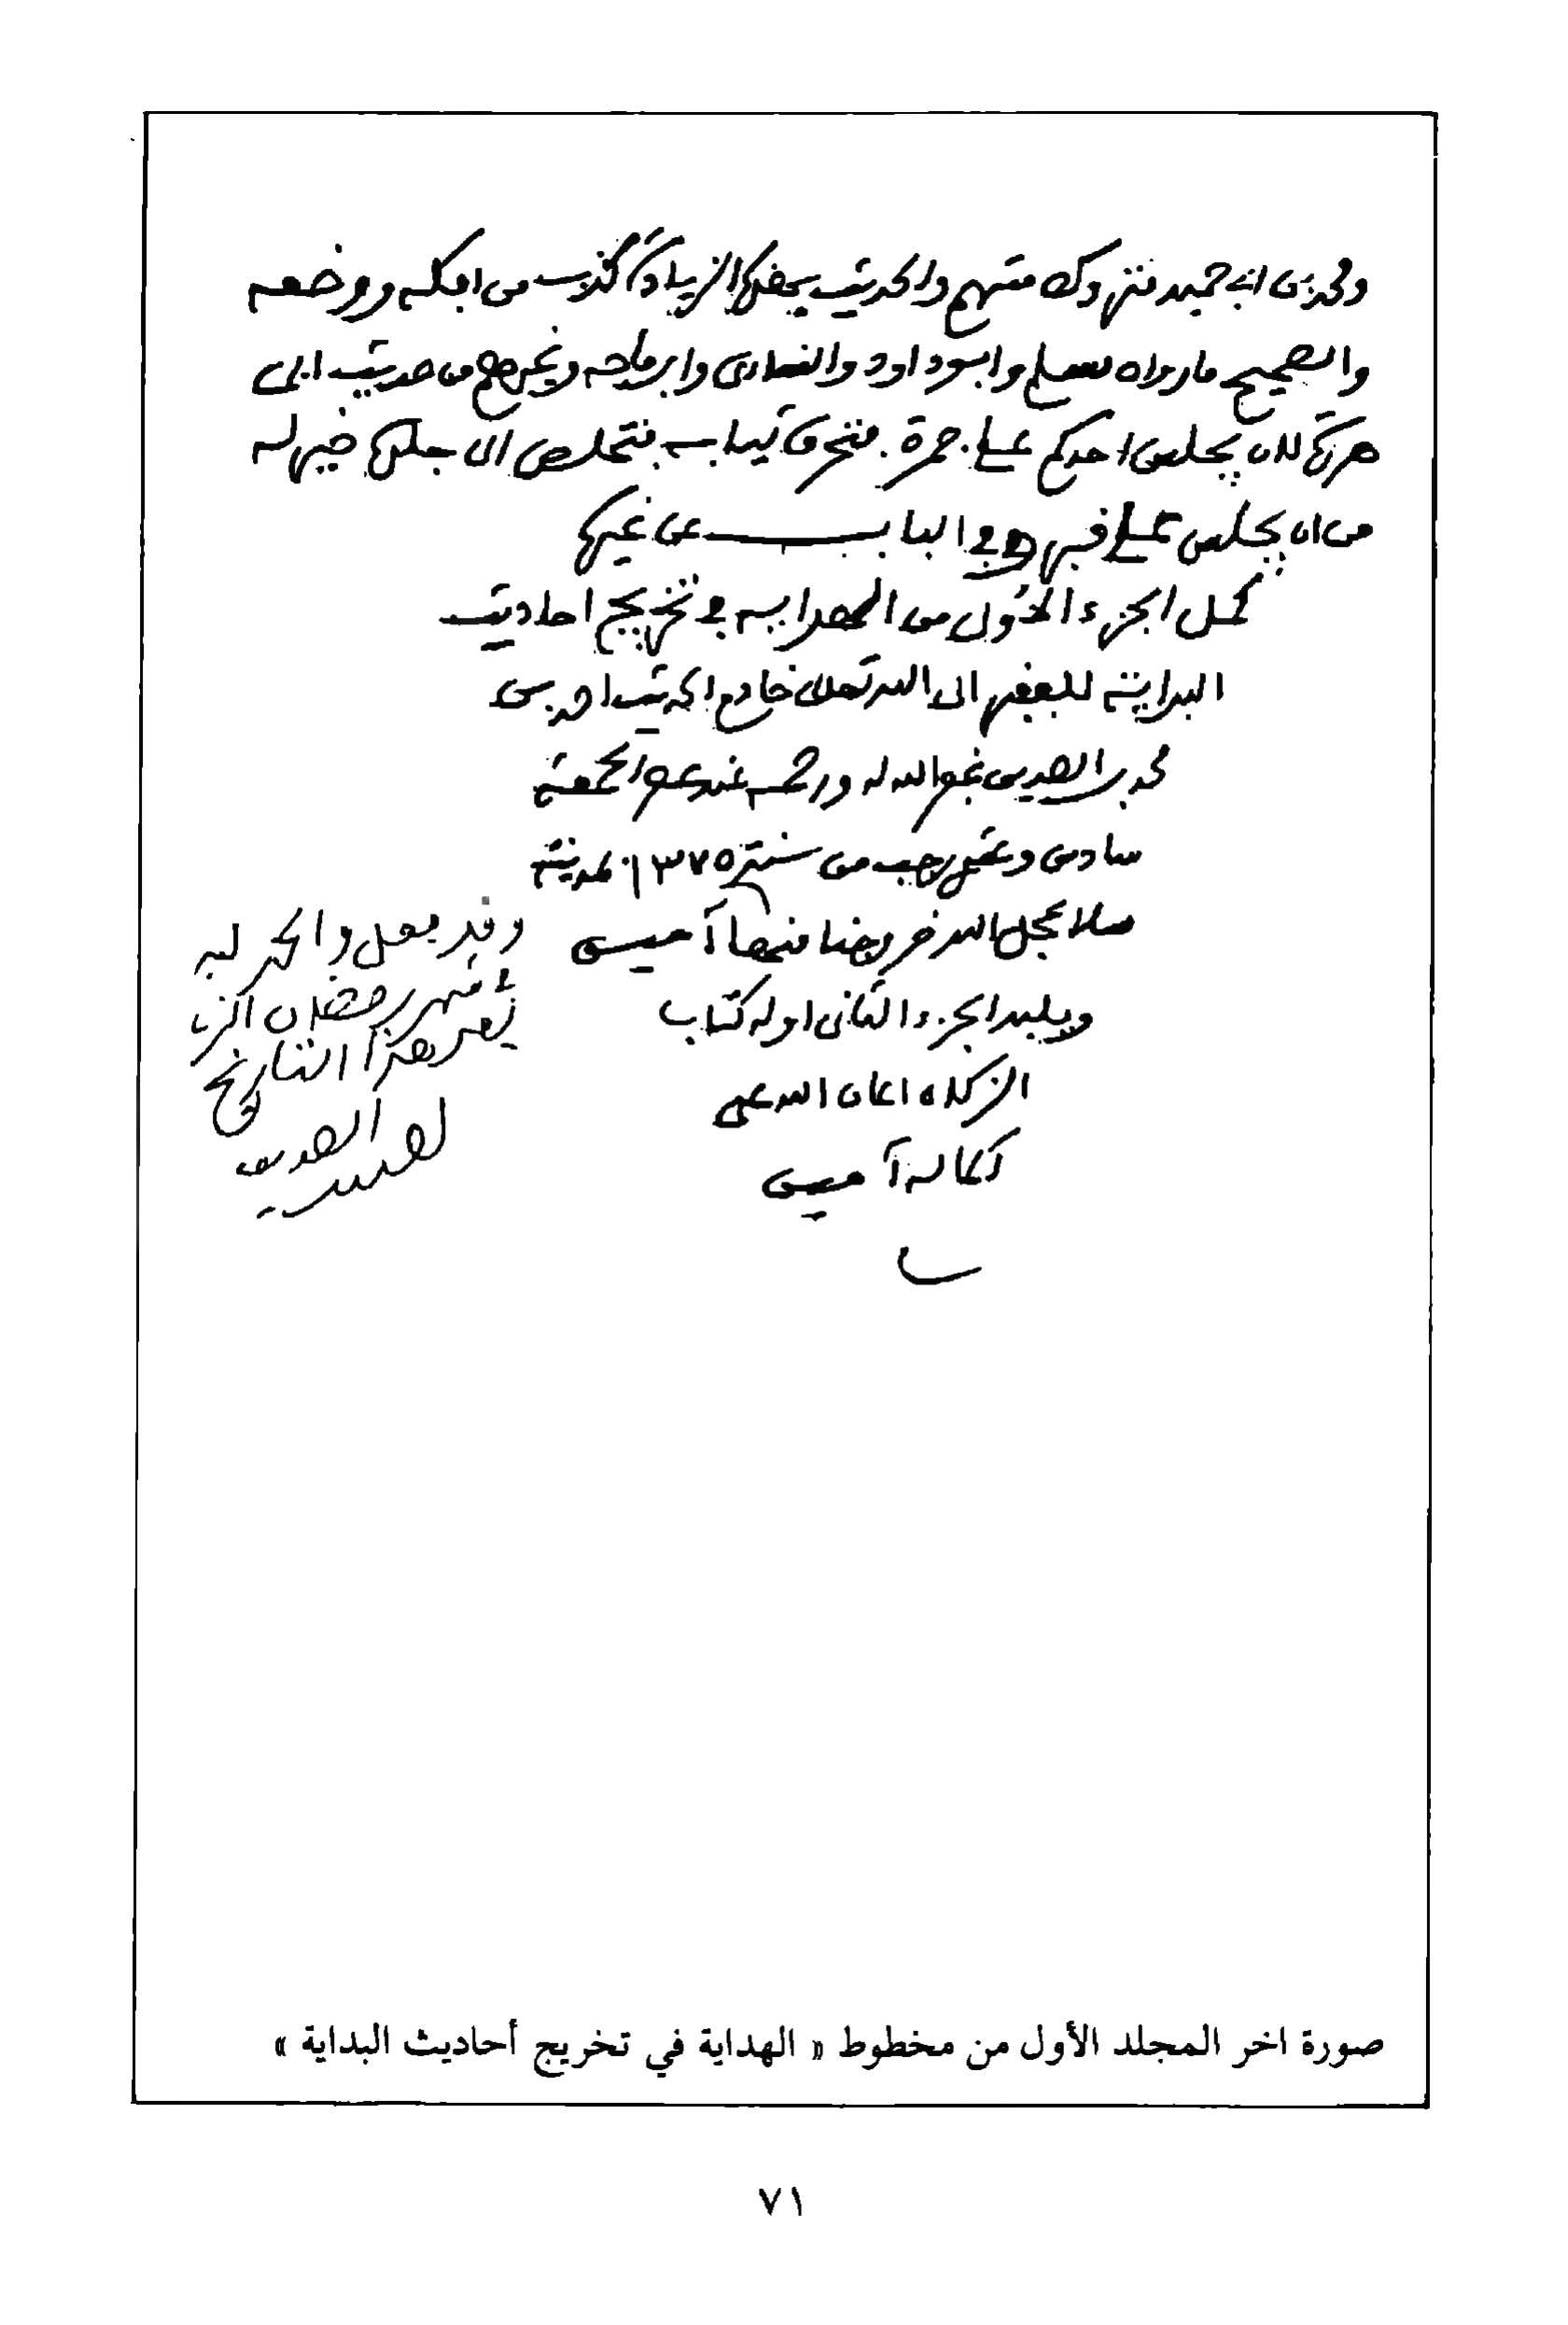 ومحمد بن ابي حميد متروك متهم والحديث بهذه الزيادة كذب من افكه ووضعه
والصحيح ما رواه مسلم وابو داود والنسائى وابن ماجه وغيرهم من حديث ابى
هريرة لان يجلس احدكم على جمرة فتحرق ثيابه فتخلص الى جلده خير له
من ان يجلس على قبر وفي الباب عن غيره
كمل الجزء الاول من الهداية في تخريج احاديث
البداية للفقير الى الله تعالى خادم الحديث احمد بن
محمد بن الصديق غفر الله له ورحمه عند عصر الجمعة
سادس وعشر رجب من سنة ١٣٧٥ بمدينة
سلا عجل الله خروجنا منها آمين
ويليه الجزء الثانى اوله كتاب
الزكاة اعان الله على
اكماله آمين
وقد فعل والحمد لله
في شهر رمضان الذى
بعد هذا التاريخ
احمد الصديق
صورة اخر المجلد الأول من مخطوط « الهداية في تخريج أحاديث البداية »
٧١